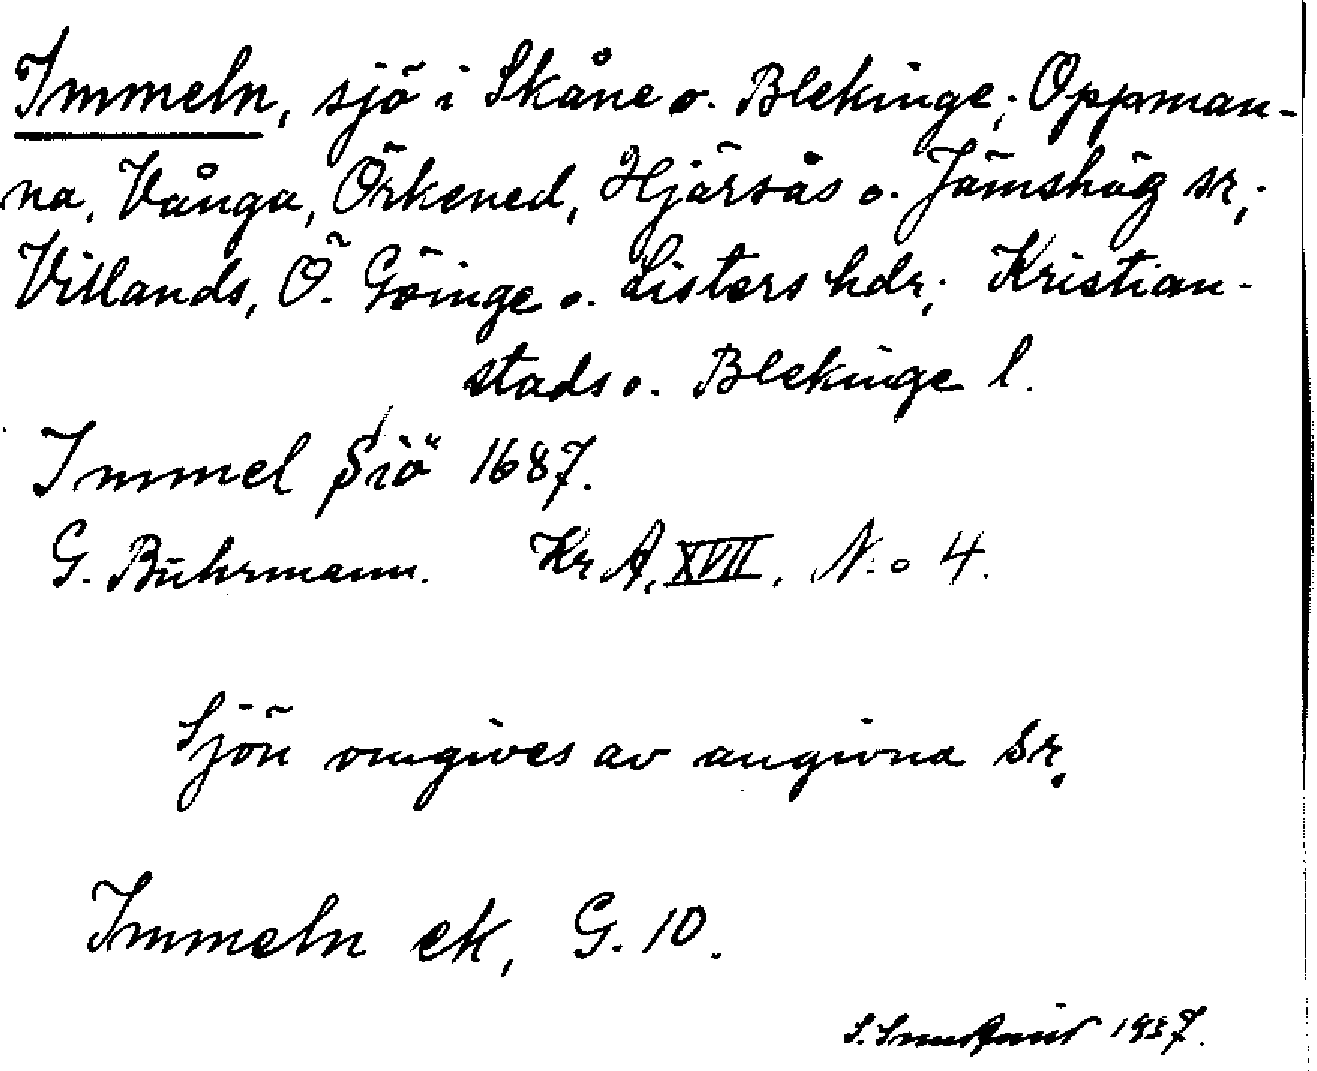 Immeln, sjö i Skåne o. Blekinge; Oppman-
na, Vånga, Örkened, Hjärsås o. Jämshög sr;
Villands, Ö. Göinge o. Listers hdr; Kristian-
stads o. Blekinge l.
Immel Siö 1687.
G. Buhrmann. KrA, XVII, N:o 4.
Sjön omgives av angivna sr.
Immeln ek, G. 10.
S. 1937.